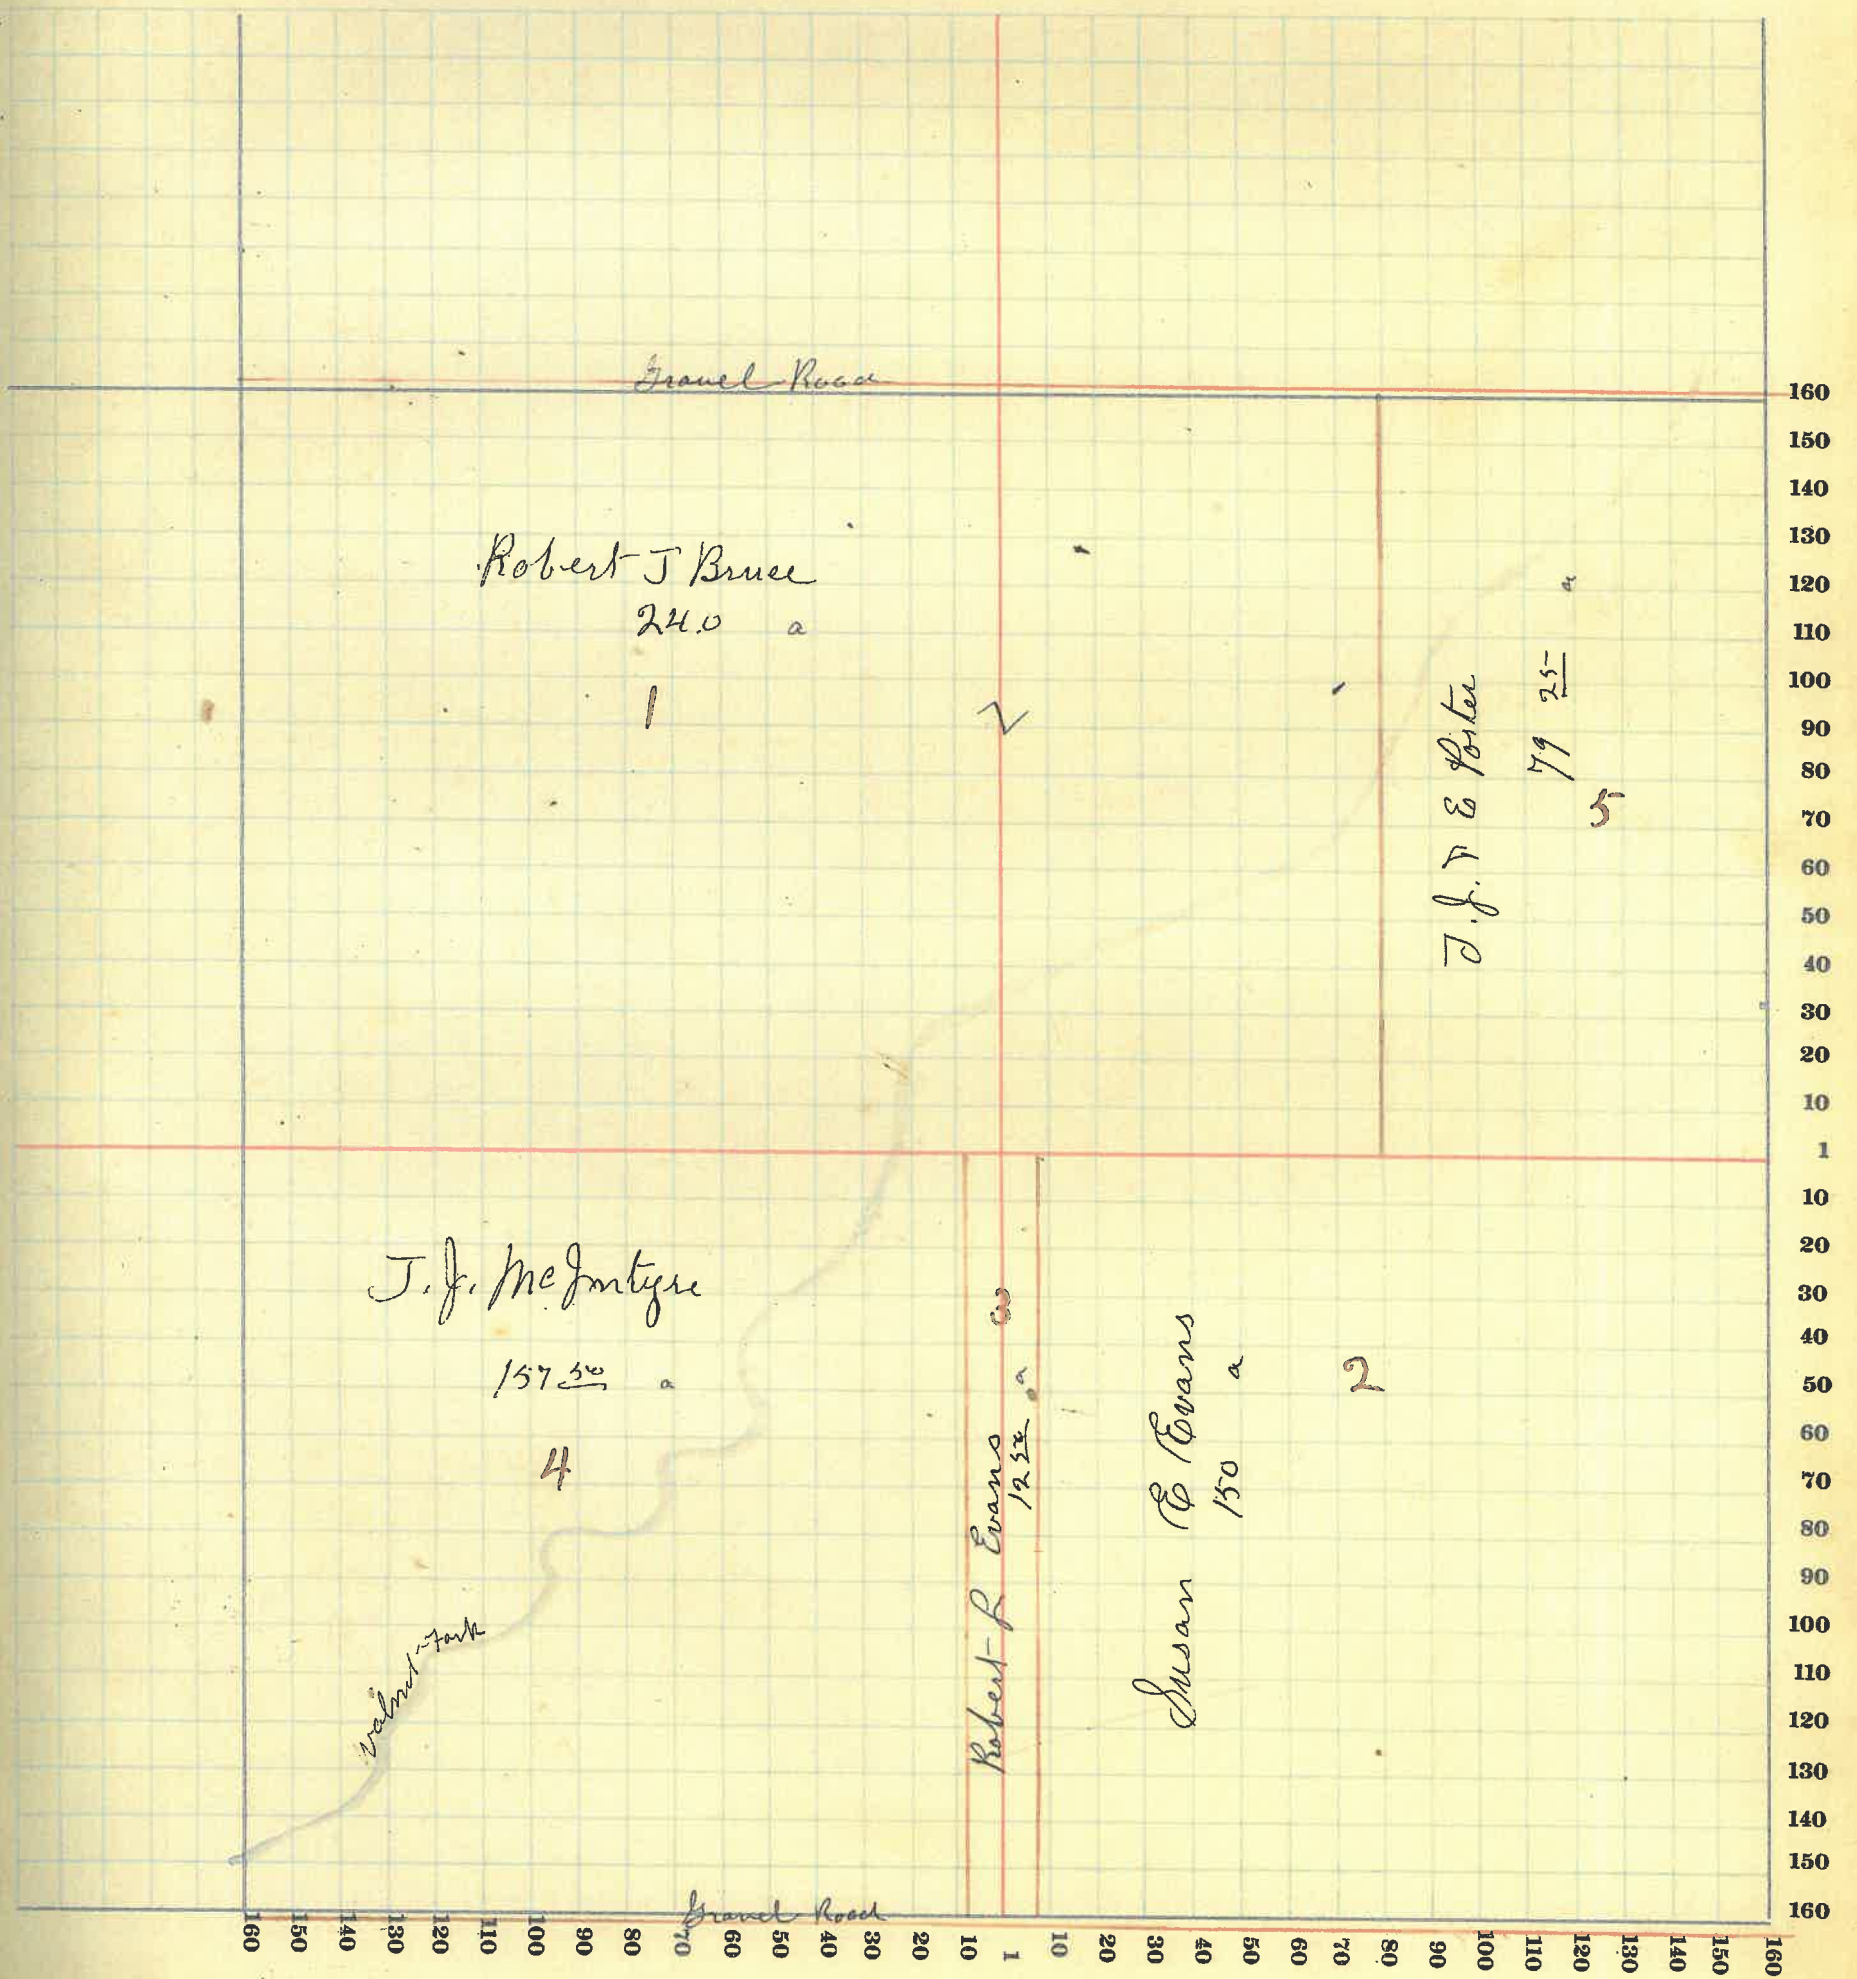 Gravel Road
Robert J Bruce
240 a
1
T. J. & E Porter
79 25 a
5
J. J. McIntyre
157 50 a
4
Robert L Evans
12 50 a
3
Susan E Evans
150 a
2
Walnut Fork
Gravel Road
160
150
140
130
120
110
100
90
80
70
60
50
40
30
20
10
1
10
20
30
40
50
60
70
80
90
100
110
120
130
140
150
160
160 150 140 130 120 110 100 90 80 70 60 50 40 30 20 10 1 10 20 30 40 50 60 70 80 90 100 110 120 130 140 150 160